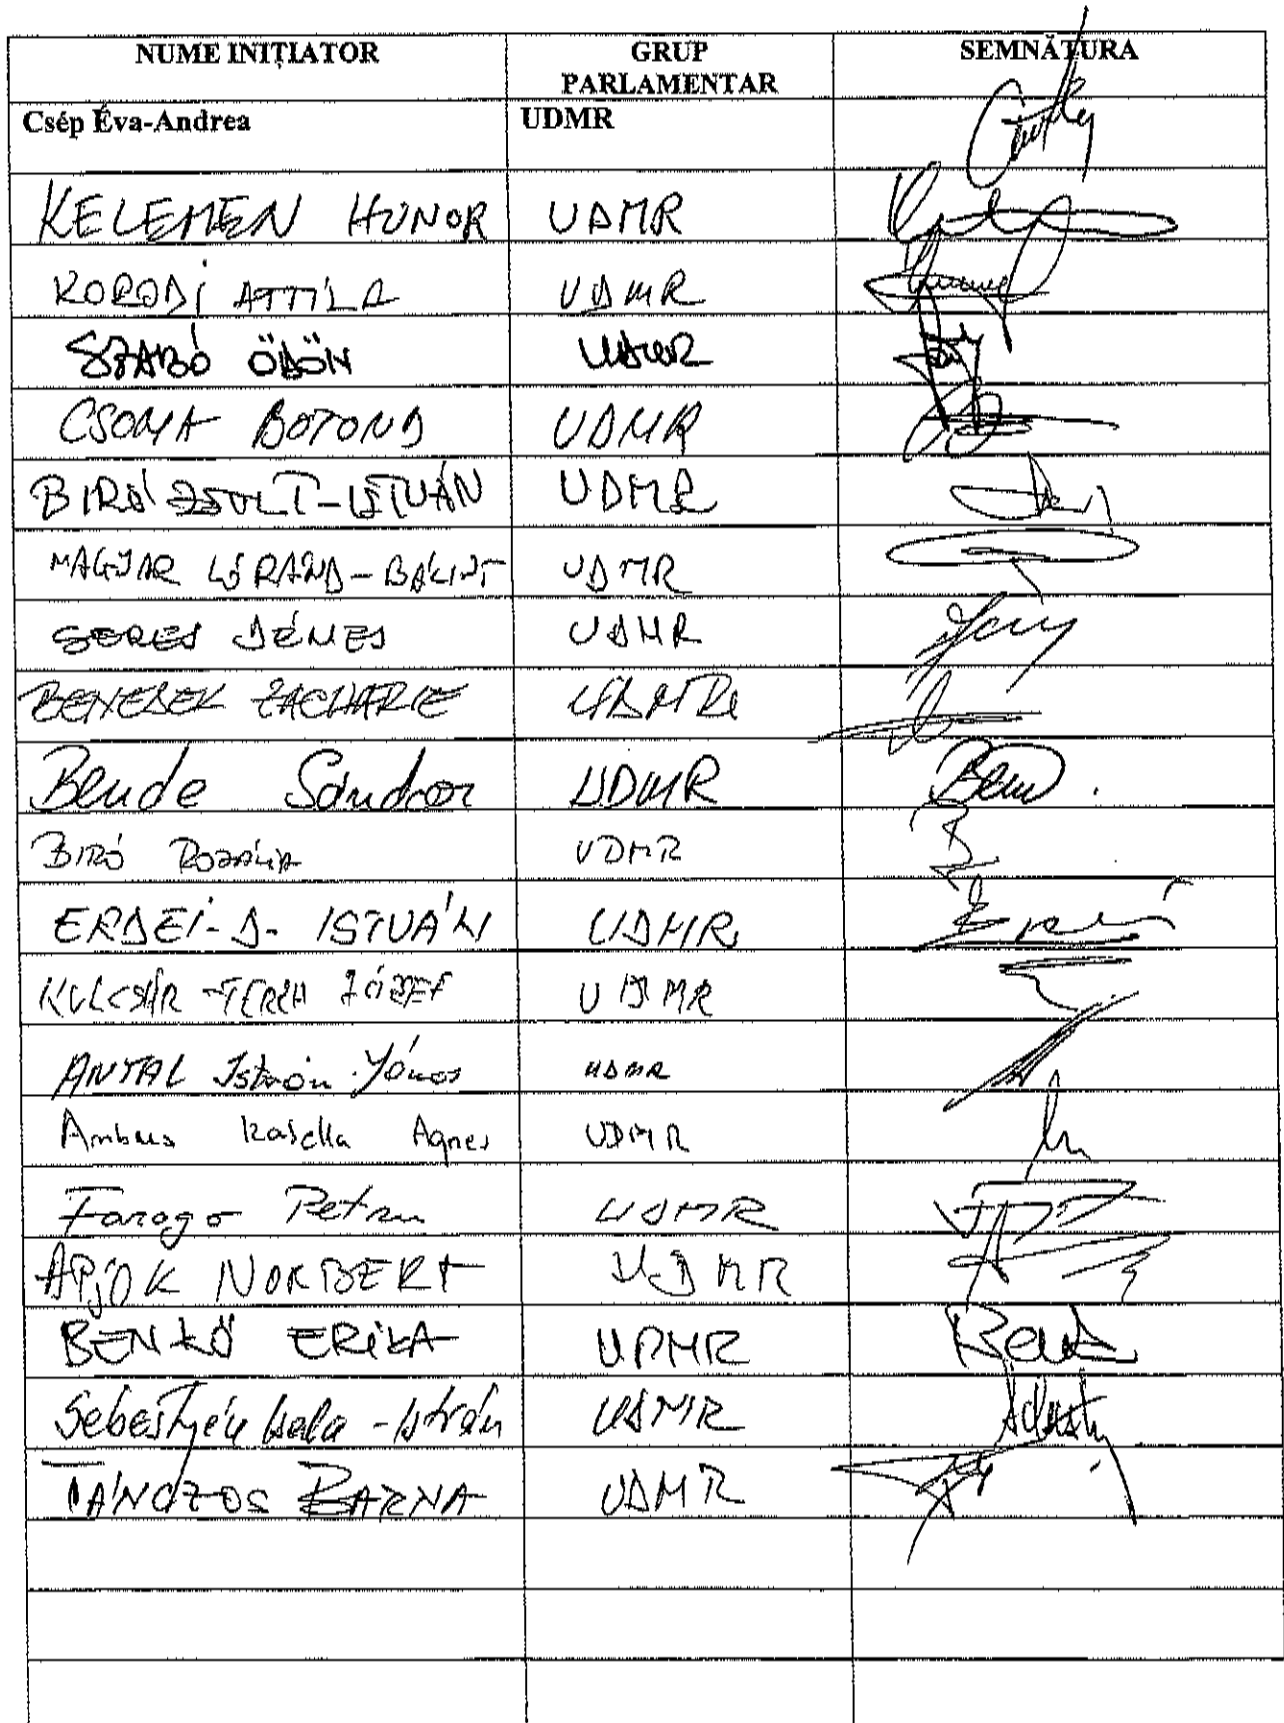 NUME INIȚIATOR GRUP PARLAMENTAR SEMNĂTURA
Csép Éva-Andrea UDMR
KELEMEN HUNOR UDMR
KORODI ATTILA UDMR
SZABÓ ÖDÖN UDMR
CSOMA BOTOND UDMR
BIRÓ ZSOLT-ISTVÁN UDMR
MAGYAR LÓRÁND-BÁLINT UDMR
SERES DÉNES UDMR
BENEDEK ZACHARIE UDMR
Bende Sándor UDMR
BIRÓ ROZÁLIA UDMR
ERDEI-D. ISTVÁN UDMR
KULCSÁR-TERZA JÓZSEF UDMR
ANTAL István-János UDMR
Ambrus Izabella Agnes UDMR
Farago Petru UDMR
APJOK NORBERT UDMR
BENKŐ ERIKA UDMR
Sebestyén Csaba-István UDMR
TÁNCZOS BARNA UDMR